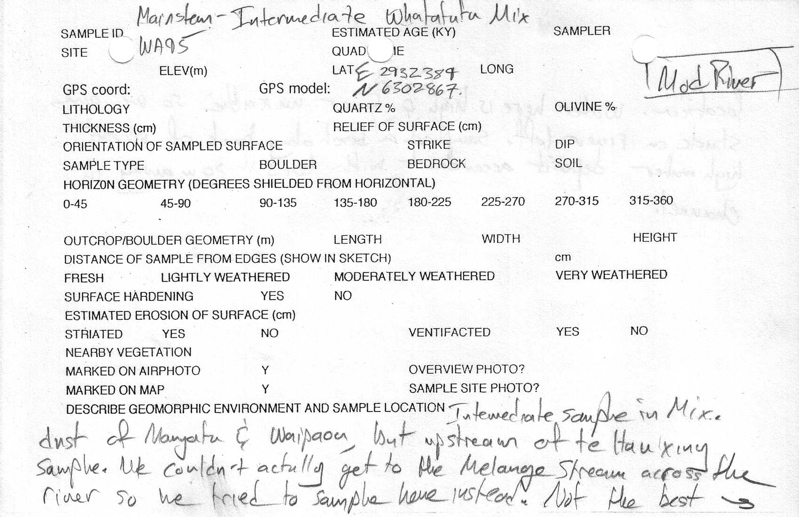 Mainstem - Intermediate Whatatutu Mix
SAMPLE ID ESTIMATED AGE (KY) SAMPLER
SITE WA95 QUAD ME
ELEV(m) LAT E 2932389 LONG
Mod River
GPS coord: GPS model: N 6302867.
LITHOLOGY QUARTZ % OLIVINE %
THICKNESS (cm) RELIEF OF SURFACE (cm)
ORIENTATION OF SAMPLED SURFACE STRIKE DIP
SAMPLE TYPE BOULDER BEDROCK SOIL
HORIZON GEOMETRY (DEGREES SHIELDED FROM HORIZONTAL)
0-45 45-90 90-135 135-180 180-225 225-270 270-315 315-360
OUTCROP/BOULDER GEOMETRY (m) LENGTH WIDTH HEIGHT
DISTANCE OF SAMPLE FROM EDGES (SHOW IN SKETCH) cm
FRESH LIGHTLY WEATHERED MODERATELY WEATHERED VERY WEATHERED
SURFACE HARDENING YES NO
ESTIMATED EROSION OF SURFACE (cm)
STRIATED YES NO VENTIFACTED YES NO
NEARBY VEGETATION
MARKED ON AIRPHOTO Y OVERVIEW PHOTO?
MARKED ON MAP Y SAMPLE SITE PHOTO?
DESCRIBE GEOMORPHIC ENVIRONMENT AND SAMPLE LOCATION Intemediate sample in Mix.
dnst of Mangatu & Waipaoa, but upstream of te
sample. We couldn't actully get to the Melange Stream across the
river so we tried to sample here instead. Not the best →